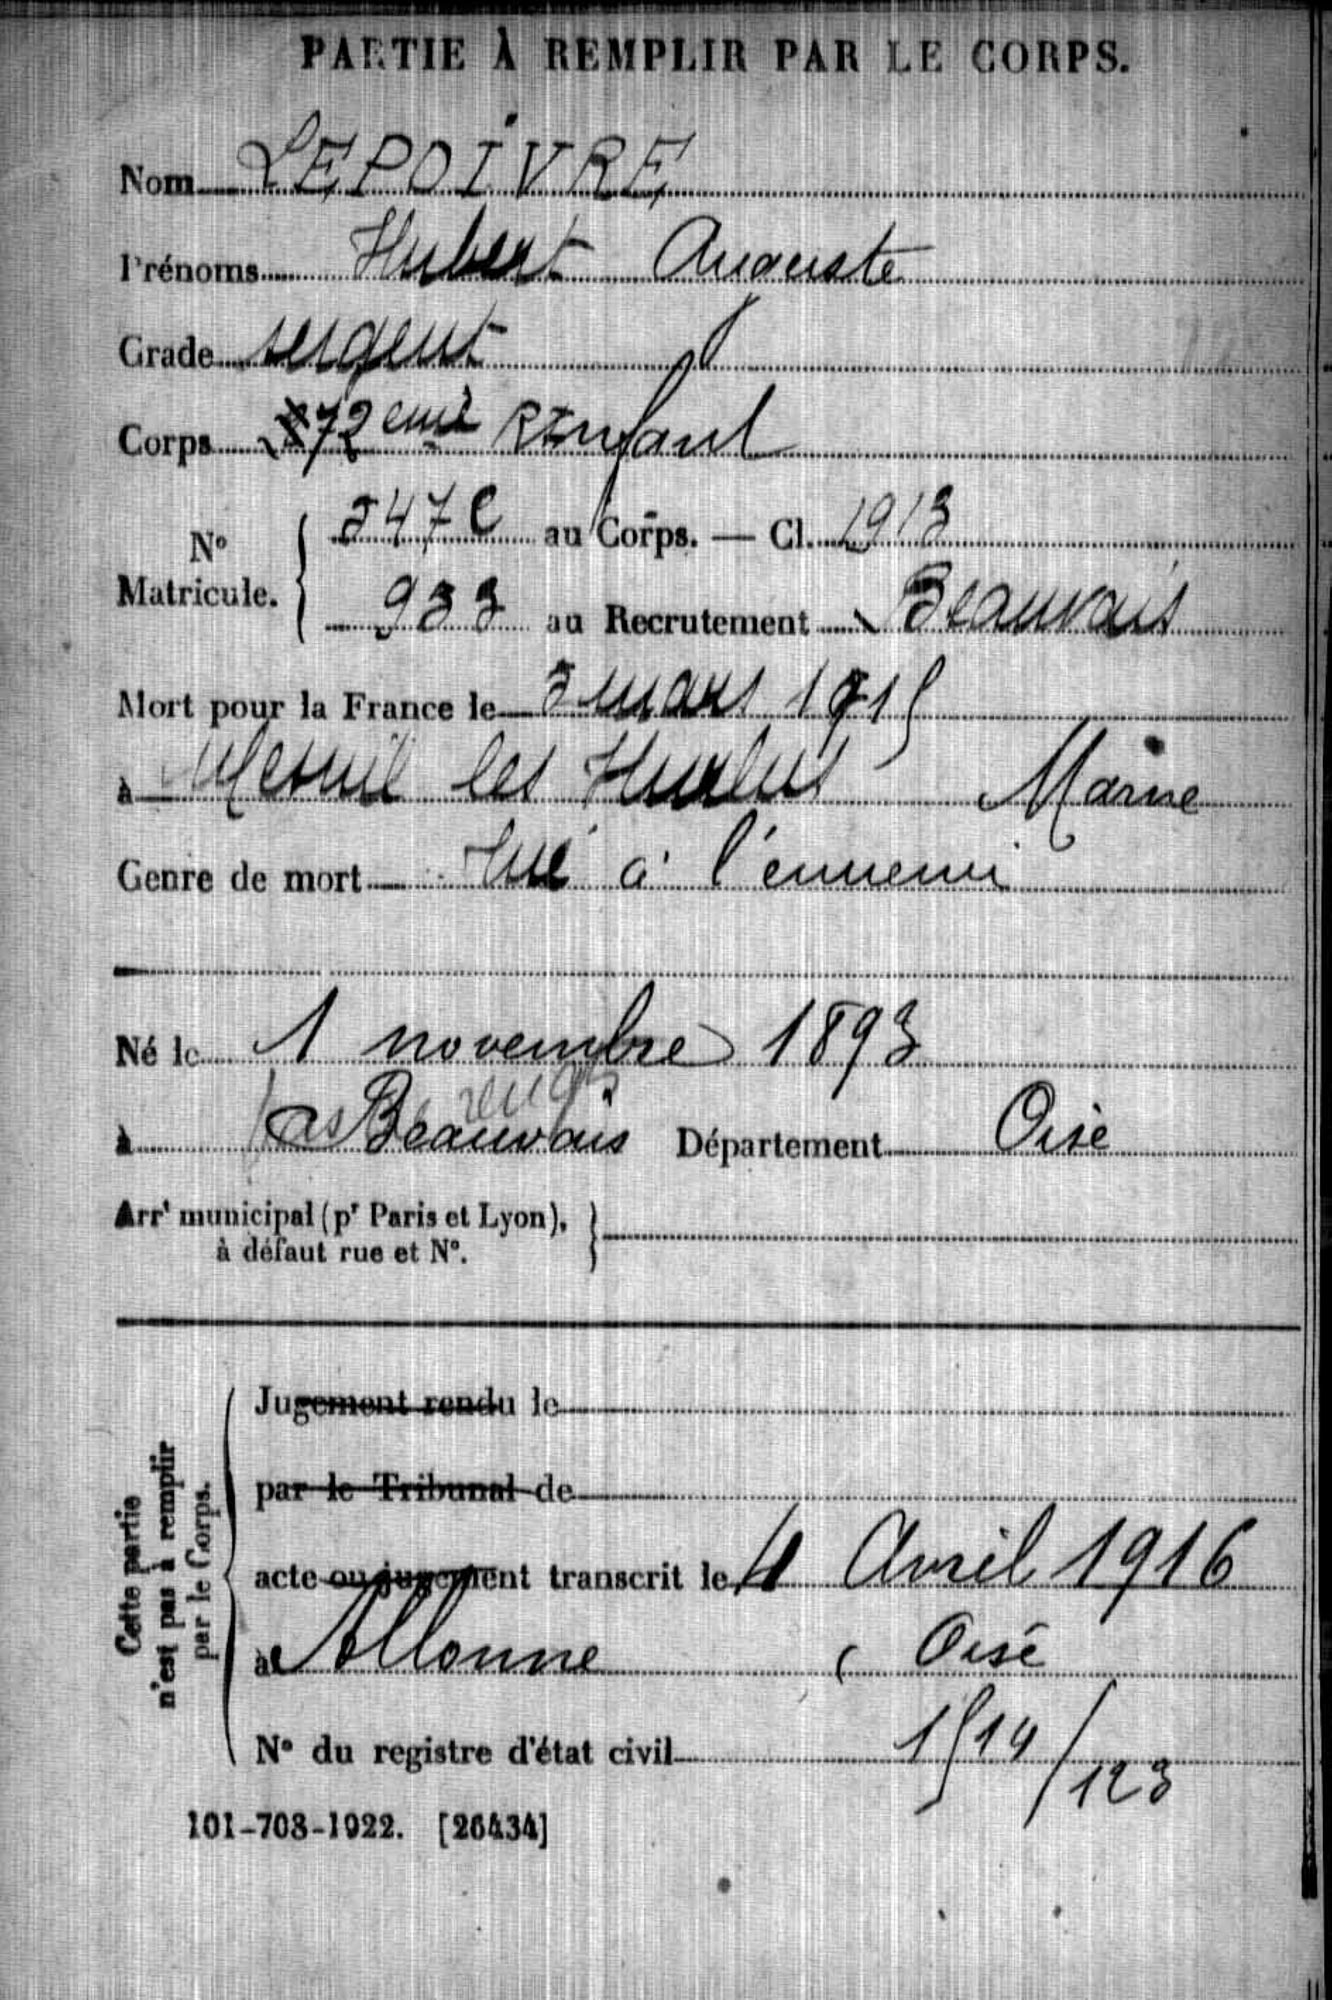 PARTIE À REMPLIR PAR LE CORPS.
Nom LEPOIVRE
Prénoms Hubert Auguste
Grade sergent
Corps 72eme RInfant
N° Matricule. 547 au Corps. — Cl. 1913
933 au Recrutement Beauvais
Mort pour la France le 5 mars 1915
à Mesnil les Hurlus Marne
Genre de mort tué à l'ennemi
Né le 1 novembre 1893
à Beauvais Département Oise
Arrt municipal (pr Paris et Lyon),
à défaut rue et N°.
Cette partie
n'est pas à remplir
par le Corps.
Jugement rendu le
par le Tribunal de
acte ou jugement transcrit le 4 Avril 1916
à Allonne ( Oise
N° du registre d'état civil 1514/123
101-708-1922. [26434]